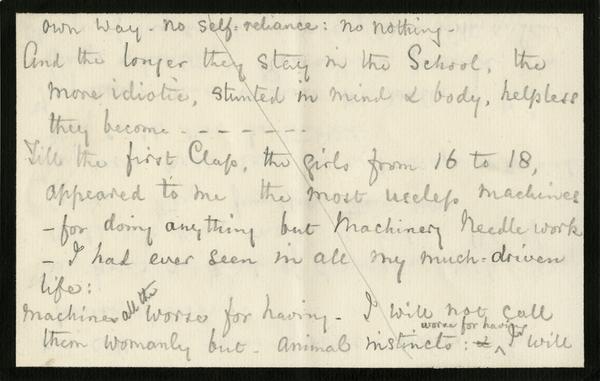 own way - no self-reliance: no nothing -
And the longer they stay in the School, the
more idiotic, stunted in mind & body, helpless
they become - - - - - - -
Till the first Class, the girls from 16 to 18,
appeared to me the most useless machines
- for doing anything but Machinery Needle work
- I had ever seen in all my much-driven
life:
machines all the worse for having - I will not call
them womanly but - animal instincts: & worse for having I will